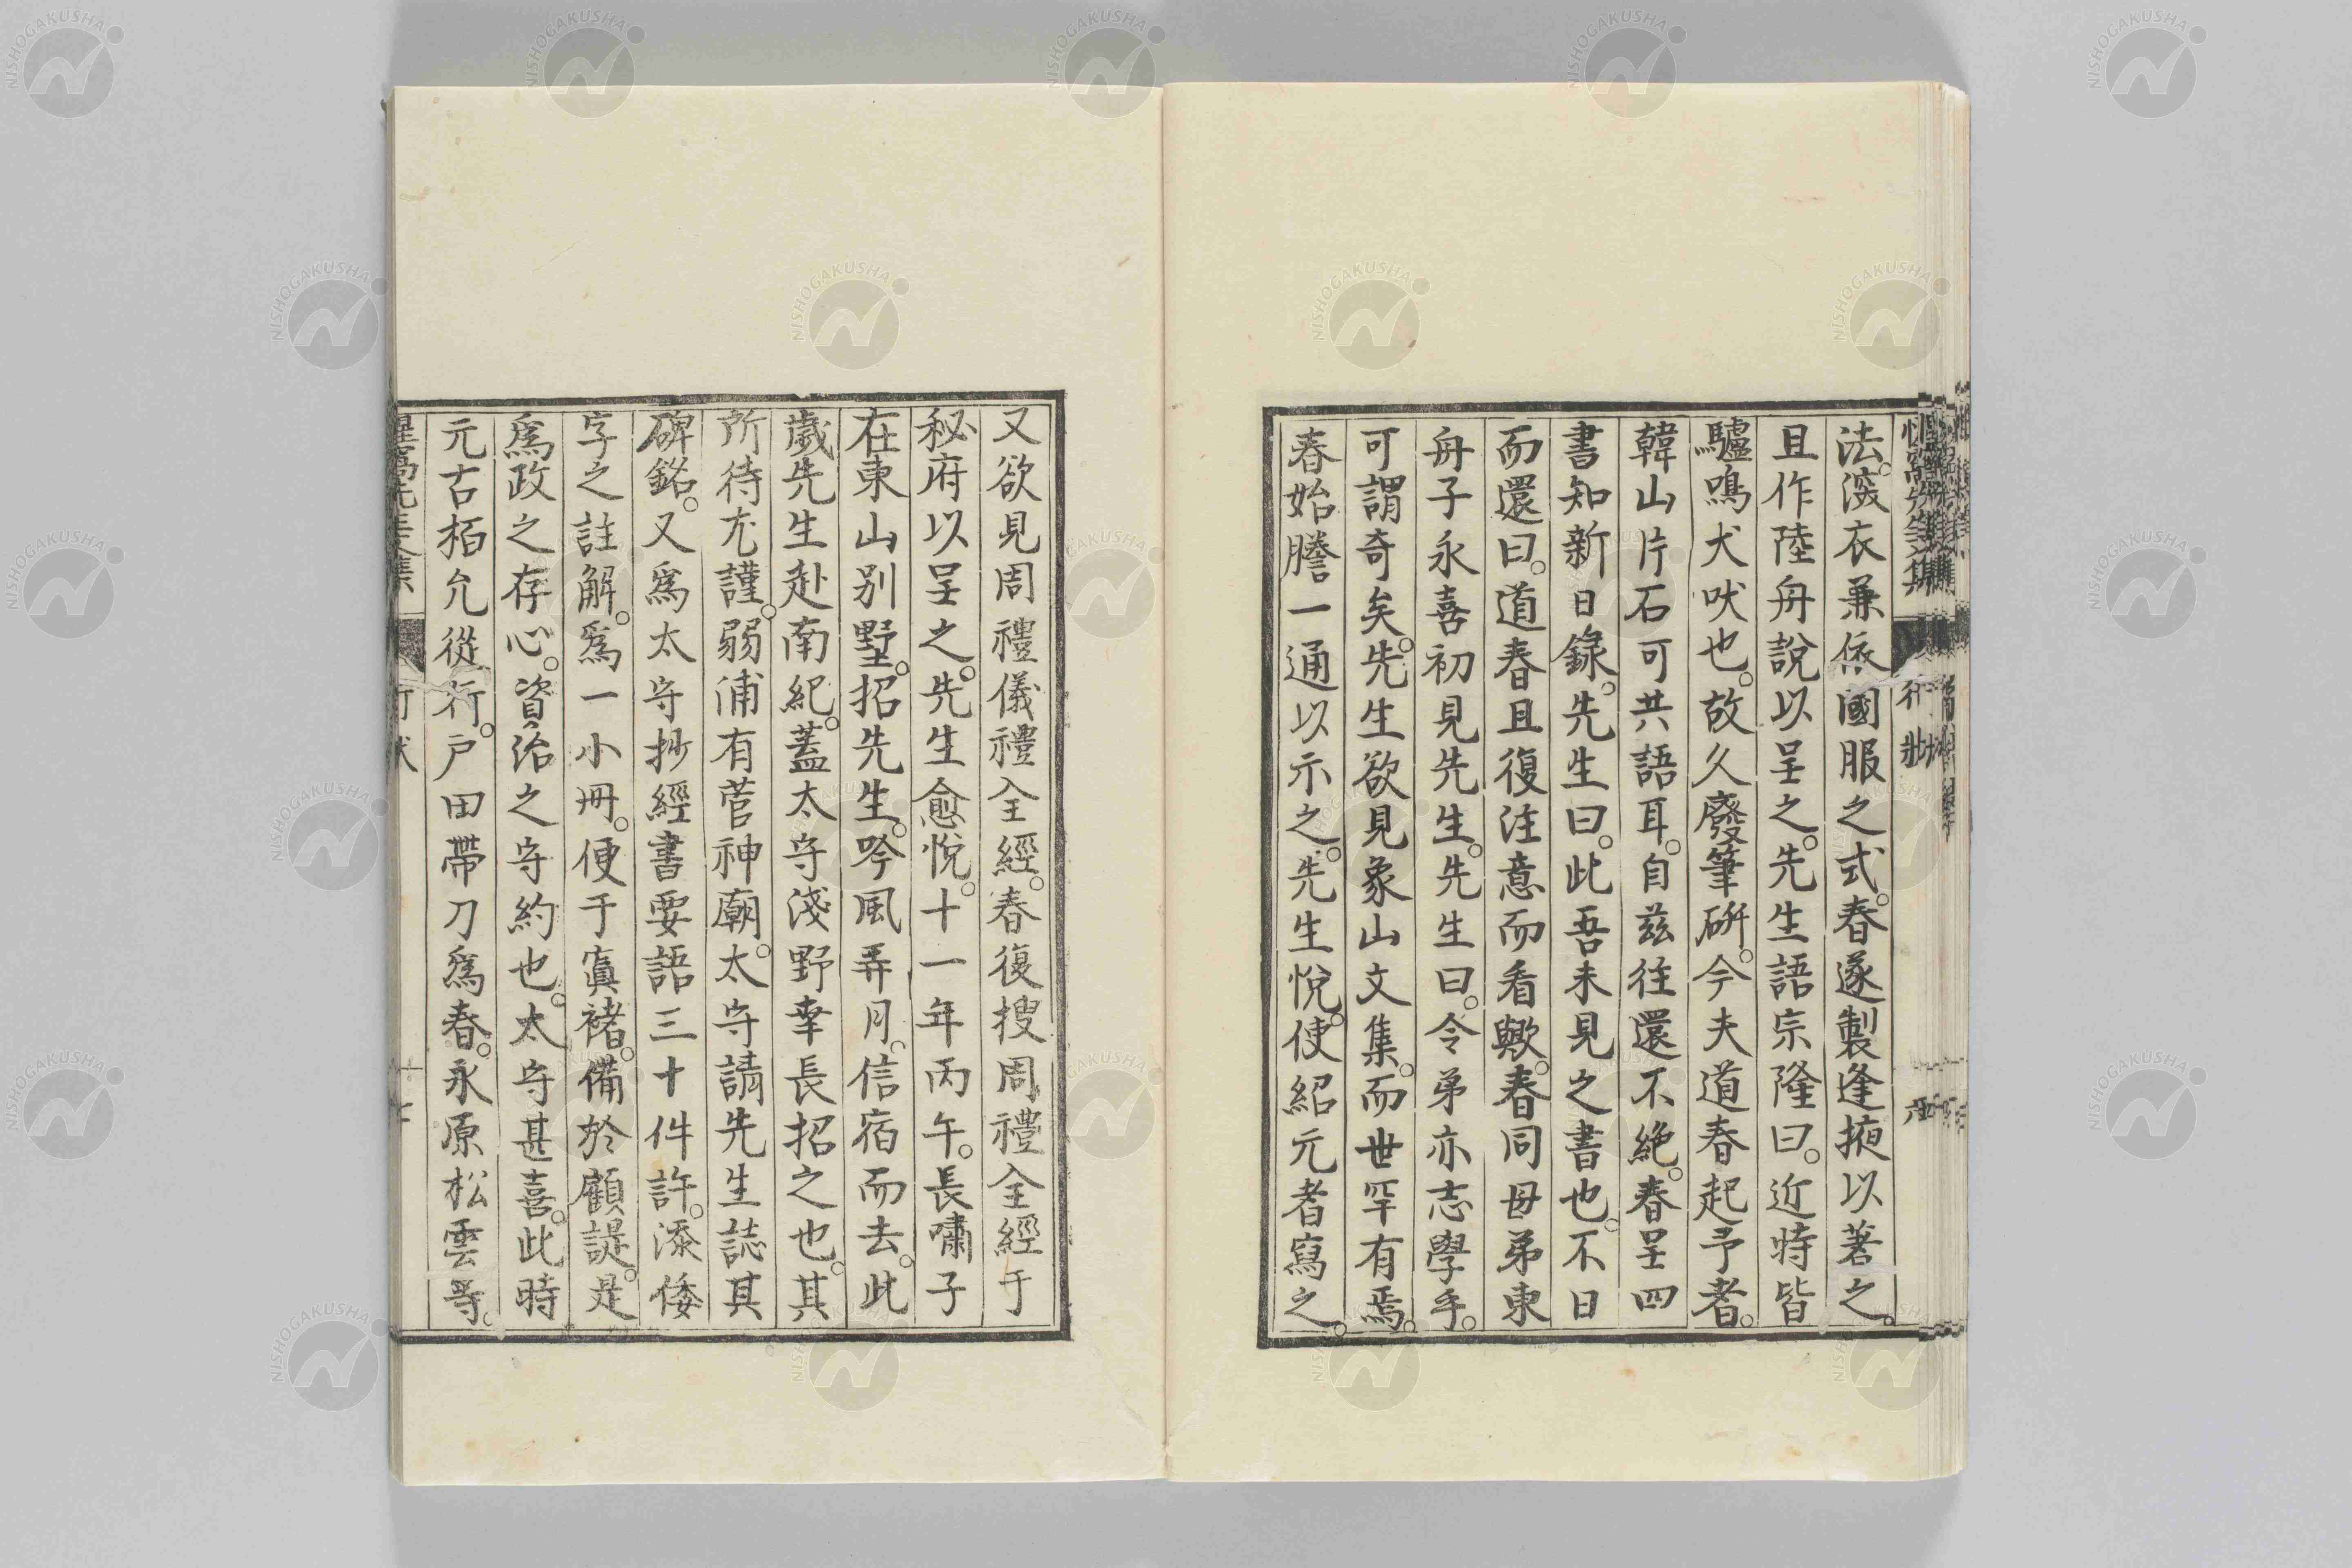 法。深衣兼依國服之式。春遂製逢掖以著之。
且作陸舟說以呈之。先生語宗隆曰。近時皆
驢鳴犬吠也。故久廢筆硏。今夫道春起予者。
韓山片石可共語耳。自茲往還不絶。春呈四
書知新日錄。先生曰。此吾未見之書也。不日
而還曰。道春且復注意而看歟。春同母弟東
舟子永喜初見先生。先生曰。令弟亦志學乎。
可謂奇矣。先生欲見象山文集。而世罕有焉。
春始謄一通以示之。先生悅。便紹元者寫之。
又欲見周禮儀禮全經。春復搜周禮全經于
秘府以呈之。先生愈悅。十一年丙午。長嘯子
在東山別墅。招先生。吟風弄月。信宿而去。此
歲先生赴南紀。蓋太守淺野幸長招之也。其
所待尤謹。弱浦有菅神廟。太守請先生誌其
碑銘。又爲太守抄經書要語三十件許。添倭
字之註解。爲一小冊。便于寘褚。備於顧諟。是
爲政之存心。資治之守約也。太守甚喜。此時
元古栢允從行。戶田帶刀爲春。永原松雲等。
行狀
NISHOGAKUSHA